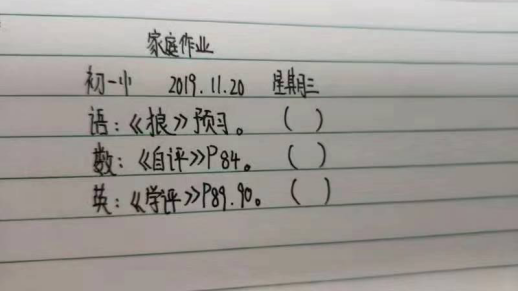 家庭作业
初一小 2019.11.20 星期三
语：《狼》预习。 （ ）
数：《自评》P84。 （ ）
英：《学评》P89.90。 （ ）